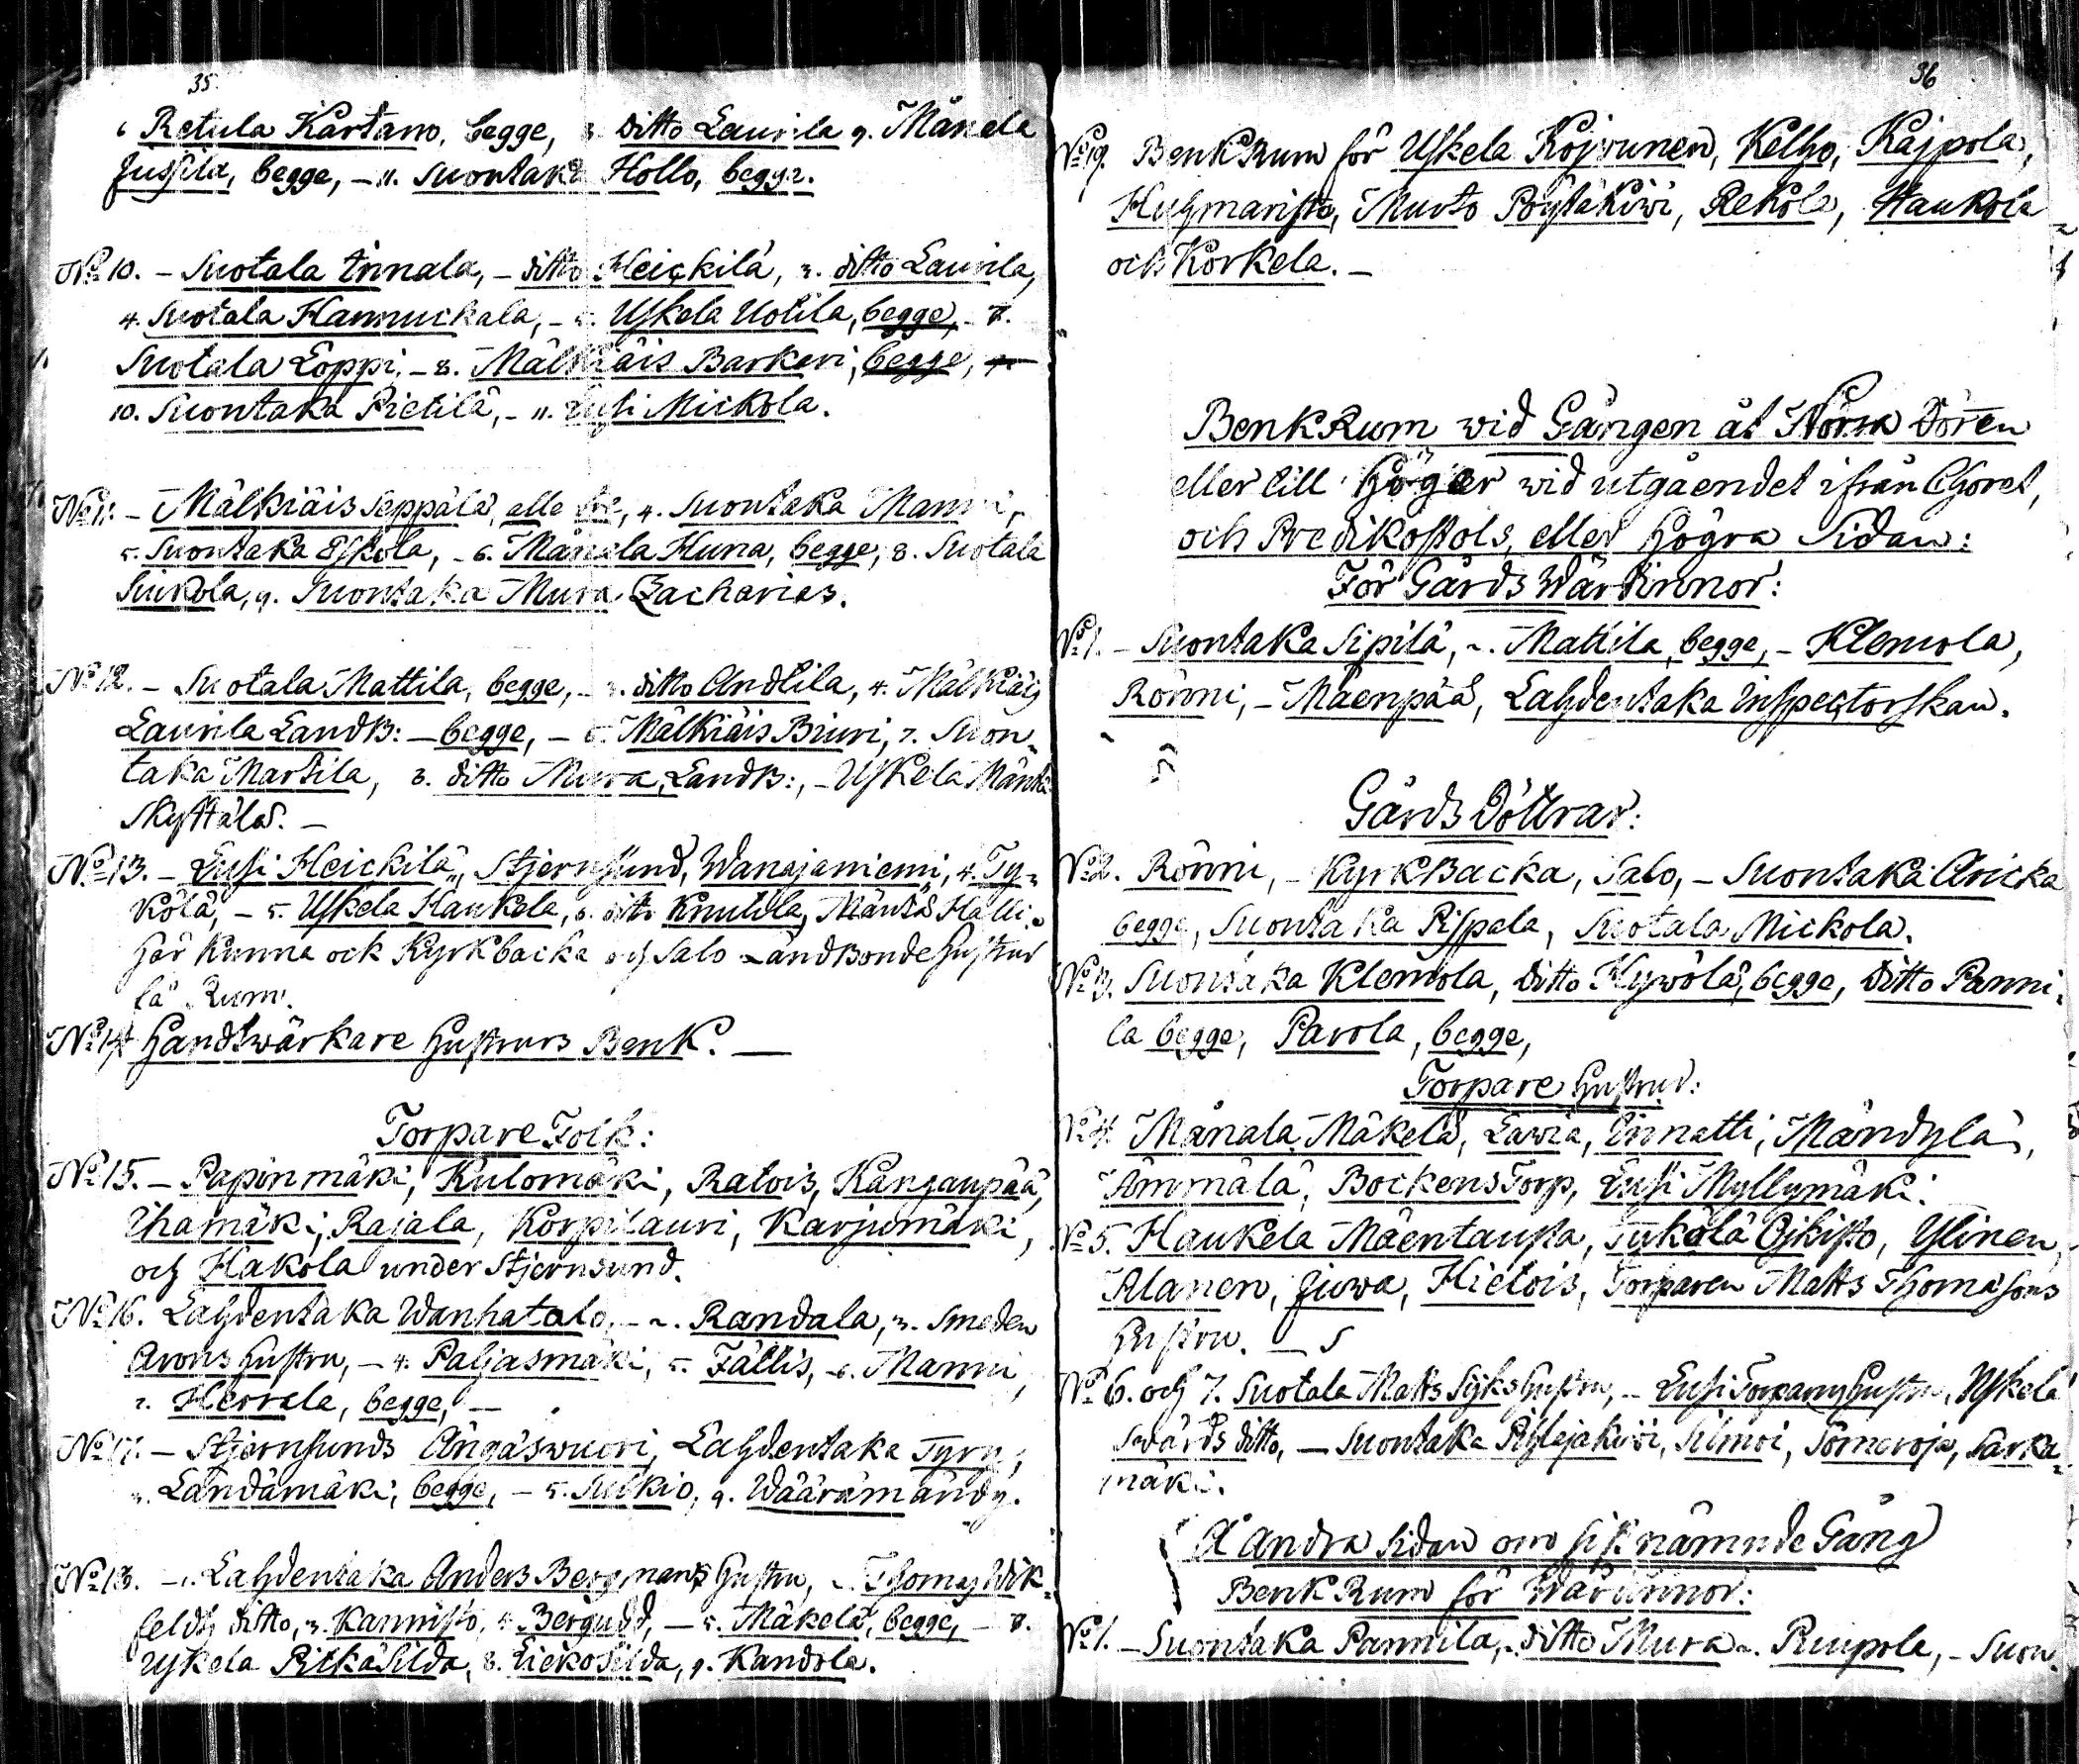 35
6 Retula Kartano, begge, 8 ditto Laurila 9. Månala
Jussila, begge, – 11. Suontaka Hollo, begge.
No 10. – Suotala Innala, – ditto Heickilä, 3. ditto Laurila,
4. Suotala Hannuckala, – 5. Uskela Uotila, begge, – 7.
Suotala Loppi, – 8. Mälkiäis Barkeri, begge,
10. Suontaka Pietilä, – 11. Eusi Mickola.
No 11. – Mälkiäis Seppälä, alle tre, 4. Suontaka Manni,
5. Suontaka Eskola, – 6. Månala Huna, begge, 8. Suotala
Suikola, 9. Suontaka Mura Zacharias.
No 12. – Suotala Mattila, begge, – 3. ditto Andlila, 4. Mälkiäis
Laurila LandB: – begge, – 6. Mälkiäis Briuri, 7. Suon=
taka Martila, 8. ditto Mura LandB:, – Uskela Mäntä
Skyttälä. –
No 13. – Eusi Heickilä, Stjernsund, Wanajaniemi, 4. Ty=
kölä, – 5. Uskela Haukela, 6. ditto Knutila, Mäntä Halli.
här kunna ock Kyrkbacka och Salo LandBonde hustrur
få Rum.
No 14 Handtwärkare hustrurs Benk. –
Torpare Folk:
No 15. – Papinmäki, Kulomäki, Ratois, Kangaupää,
Ihamäki, Rajala, Korpilauri, Karjumäki,
och Hakola under Stjernsund.
No 16. Lahdentaka Wanhatalo, – 2. Randala, 3. Smeden
Arons hustru, – 4. Paljasmäki, 5. Fällis, – 6. Manni,
7. Herrala, begge, –
No 17. – Stjernsunds Ängäswuori, Lahdentaka Tyry,
3. Landämäki, begge, – 5. Sulkio, 9. Wäärämändy.
No 18. – 1. Lahdentaka Anders Bergmans hustru, 2. Thomas Wik=
feldts ditto, 3. Kannisto, 4. Bergudd, – 5. Mäkelä, begge, – 7.
Uskela PitkäSilda, 8. Liekosilda, 9. Kandola.
36
No 19. BenkRum för Uskela Kojvunen, Kelho, Kajpola,
Huhmaristo, Murto Pöytäkiwi, Rekola, Haukola
och Korkela. –
BenkRum wid Gången åt Norra Dören
eller till höger wid utgåendet ifrån Choret,
och Predikostols, eller högra Sidan:
För Gårds Wärdinnor:
No 1. – Suontaka Sipilä, 2. Mattila, begge, – Klemola,
Rönni, – Mäenpää, Lahdentaka Inspectorskan.
Gårds Döttrar:
No 2. Rönni, – KyrkBacka, Salo, – Suontaka Aricka
begge, Suontaka Pispala, Suotala Mickola.
No 3. Suontaka Klemola, ditto Hywölä, begge, ditto Panni=
la begge, Parola, begge,
Torpare hustrur:
No 4. Månala Mäkelä, Lawia, Innatti, Mändylä,
Ämmälä, Bockens Torp, Eusi Myllymäki.
No 5. Haukela Mäentausta, Tykölä Ojkisto, Ylinen,
Alanen, Juwa, Hietois, Torparen Matts Thomassons
hustru. –
No 6. och 7. Suotala Matts Sijks hustru, – Eusi Torparns hustru, Uskela
Swärds ditto, – Suontaka Pihlajakiwi, Silmoi, Sömeroja, Särkä=
mäki.
Å Andra Sidan om sistnämnde Gång
BenkRum för Wärdinnor:
No 1. – Suontaka Pannila, – ditto Mura 2. Ruipola, – Suon=